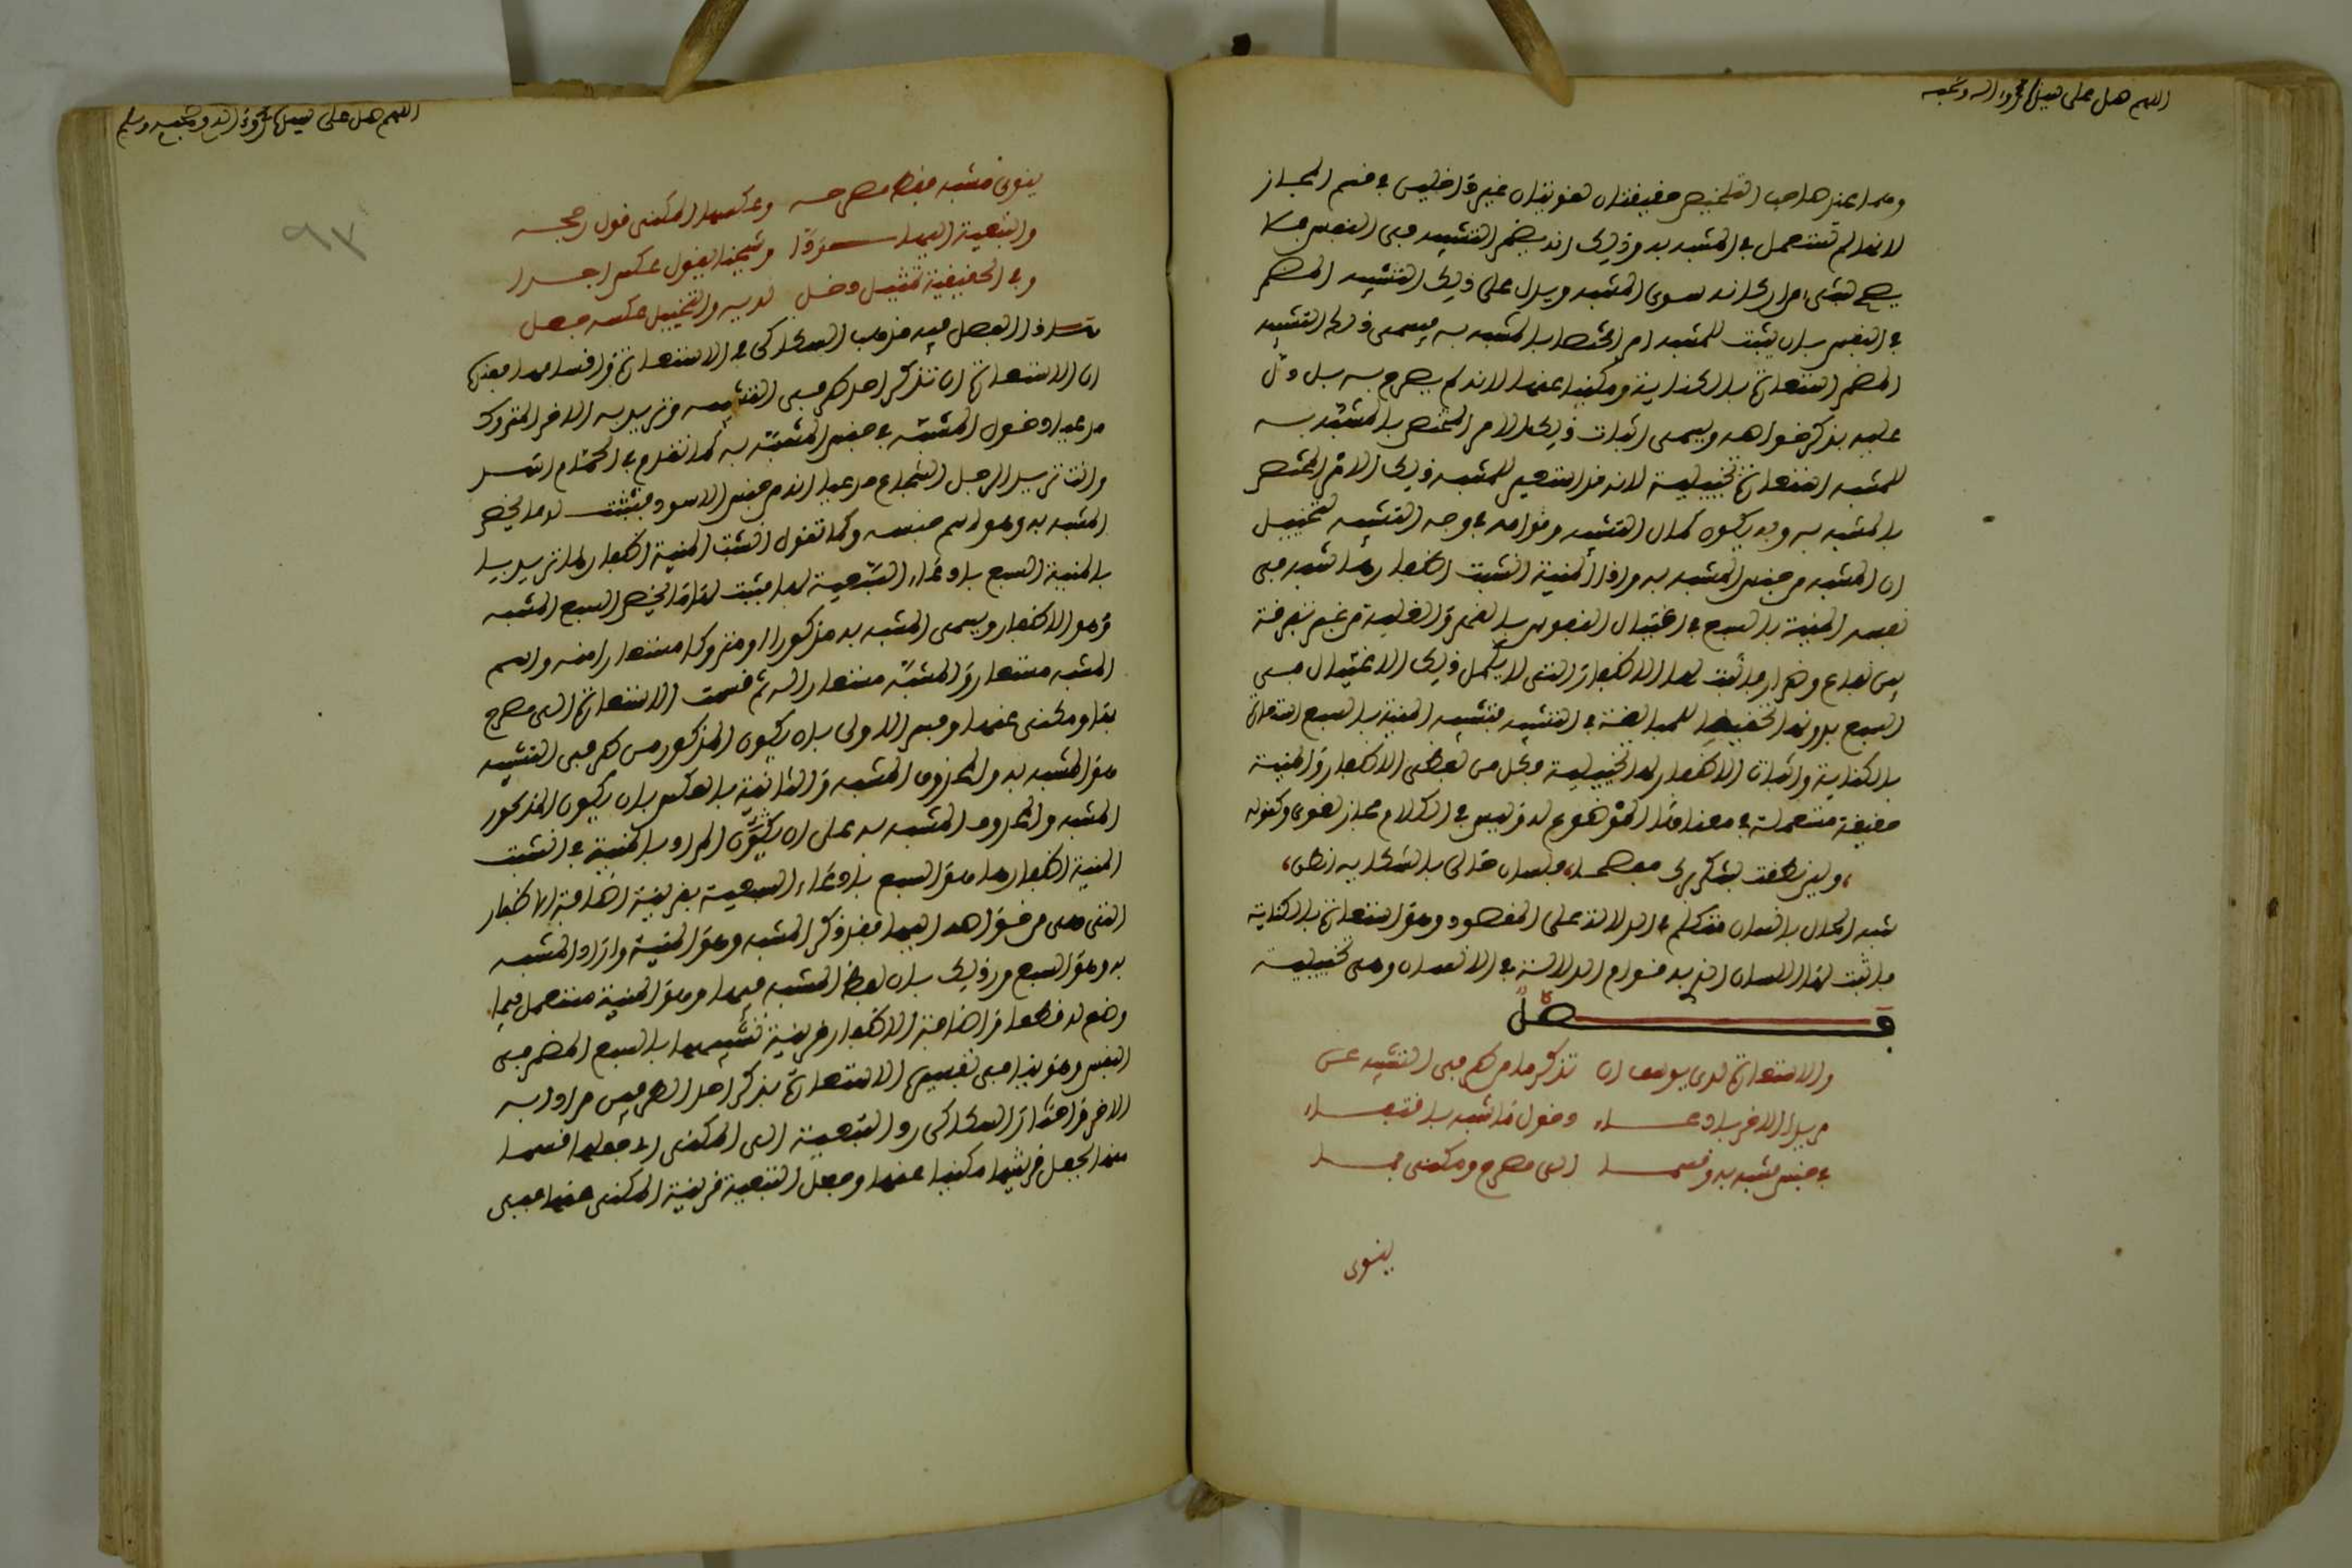 اللهم صل على سيدنا محمد واله وصحبه
وهما عند صاحب التلخيص حقيقتان لغويتان غير داخليتن في قسم المجاز
لانها لم تستعمل في المشبه به وذلك انه يضمر التشبيه في النفس فلا
يصرح بشيء من اركانه سوى المشبه ويدل على ذلك التشبيه المضمر
في النفس بان يثبت للمشبه امر مختص بالمشبه به فيسمى ذلك التشبيه
المضمر استعارة بالكناية ومكنيا عنها لانه لم يصرح به بل دل
عليه بذكر خواصه ويسمى اثبات ذلك الامر المختص بالمشبه به
للمشبه استعارة تخييلية لانه قد استعير للمشبه ذلك الامر المختص
بالمشبه به وبه يكون كمال المشبه وقوامه في وجه التشبيه لتخييل
ان المشبه من جنس المشبه به واذا المنية انشبت اظفارها شبه في
نفسه المنية بالسبع في اغتيال النفوس بالقهر والغلبة من غير تفرقة
بين نفاع وضرار فاثبت لها الاظفار التي لا يكمل ذلك الاغتيال في
السبع بدونها تحقيقا للمبالغة في التشبيه فتشبيه المنية بالسبع استعارة
بالكناية واثبات الاظفار لها تخييلية وكل من لفظي الاظفار والمنية
حقيقة مستعملة في معناها الموضوع له وليس في الكلام مجاز لغوي وكقوله
ولئن نطقت بشكر برك مفصحا، فلسان حالي بالشكاية انطق،
شبه الحال بانسان متكلم في الدلالة على المقصود وهو استعارة بالكناية
فاثبت لها اللسان الذي به قوام الدلالة في الانسان وهي تخييلية
فصل
والاستعارة لدى يوسف ان تذكر ما من طرفي التشبيه عن
مريدا الاخر بادعاء دخول ما شبه باقتفاء
في جنس مشبه به وقسما الى مصرح ومكني فما
ينوى
اللهم صل على سيدنا محمد واله وصحبه وسلم
٩٣
ينوى مشبه فقط مصرحه وعكسها المكني قول رجحه
والتبعية اليها ردا وشيخنا يقول عكس اجدا
وفي الحقيقية تمثيل دخل لديه والتخييل عكسه فصل
هذا الفصل فيه مذهب السكاكي في الاستعارة واقسامها فعنده
ان الاستعارة ان تذكر احد طرفي التشبيه وتريد به الاخر المتروك
مدعيا دخول المشبه في جنس المشبه به كما تقول في الحمام اسد
وانت تريد الرجل الشجاع مدعيا انه من جنس الاسود فتثبت له ما يخص
المشبه به وهو اسم جنسه وكما تقول انشبت المنية اظفارها تريد
بالمنية السبع بادعاء السبعية لها فتثبت لها ما يخص السبع المشبه
وهو الاظفار ويسمى المشبه به مذكورا او متروكا مستعارا منه واسم
المشبه به مستعارا والمشبه مستعارا له ثم قسمت الاستعارة الى مصرح
بها ومكني عنها وفسر الاولى بان يكون المذكور من طرفي التشبيه
هو المشبه به والمحذوف المشبه والثانية بالعكس بان يكون المذكور
المشبه والمحذوف المشبه به على ان يكون المراد بالمنية في انشبت
المنية اظفارها هو السبع بادعاء السبعية بقرينة اضافة الاظفار
التي هي من خواصه اليها فقد ذكر المشبه وهو المنية واراد المشبه
به وهو السبع ورد ذلك بان لفظ المشبه فيها وهو المنية مستعمل فيما
وضع له قطعا واضافة الاظفار قرينة تشبيهها بالسبع المضمر في
النفس وهو ينافي تفسير الاستعارة بذكر احد الطرفين مرادا به
الاخر واختار السكاكي رد التبعية الى المكني اي جعلها قسما
منها بجعل قرينتها مكنيا عنها وجعل التبعية قرينة المكني عنها ففي